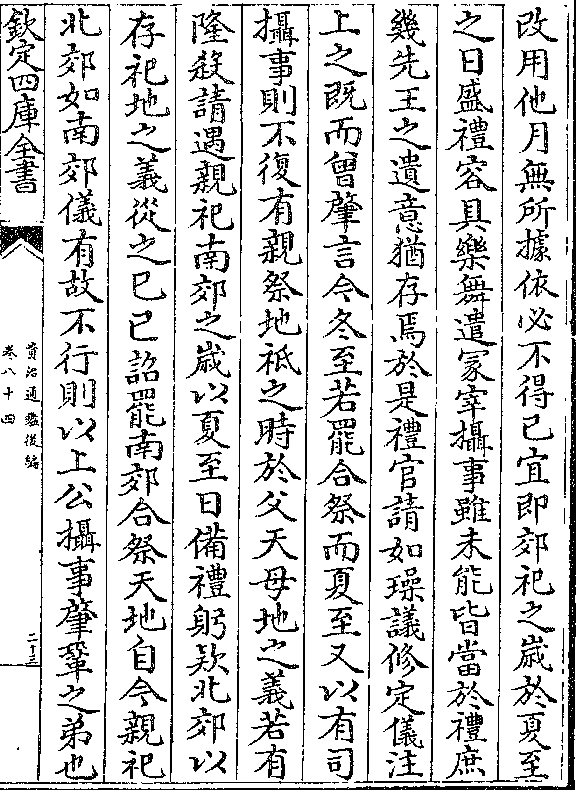 改用他月無所據依必不得已宜即郊祀之嵗於夏至
之日盛禮容具樂舞遣冢宰攝事雖未能皆當於禮庶
幾先王之遺意猶存焉於是禮官請如璪議修定儀注
上之既而曾肇言今冬至若罷合祭而夏至又以有司
攝事則不復有親祭地祗之時於父天母地之義若有
隆殺請遇親祀南郊之嵗以夏至日備禮躬欵北郊以
存祀地之義從之己巳詔罷南郊合祭天地自今親祀
北郊如南郊儀有故不行則以上公攝事肇鞏之弟也
欽定四庫全書
資治通鑑後編
卷八十四
二十三